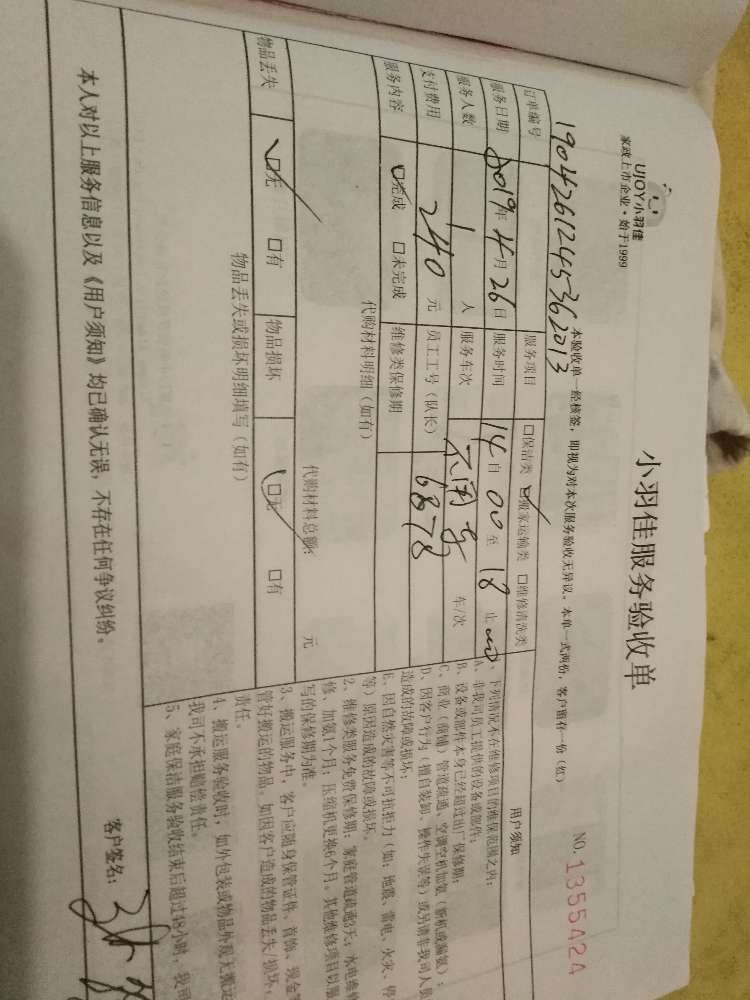 UJOY小羽佳
家政上市企业·始于1999
小羽佳服务验收单
NO. 1355424
本验收单一经核签，即视为对本次服务验收无异议。本单一式两份，客户留存一份（红）
订单编号 1904261245362013
服务项目 □保洁类 ☑搬家运输类 □维修清洗类
服务日期 2019年4月26日
服务时间 14自00至18止00
服务人数 1人
服务车次 不用车 车/次
支付费用 240元
员工工号（队长） 6878
服务内容 ☑完成 □未完成
维修类保修期
代购材料明细（如有）
代购材料总额： 元
物品丢失 ☑无 □有
物品损坏 ☑无 □有
物品丢失或损坏明细填写（如有）
用户须知
、下列情况不在维修项目的维保范围之内：
A、非我司员工提供的设备或部件；
B、设备或部件本身已经超过出厂保修期；
C、商业（商铺）管道疏通、空调空机加氨（断机或漏氨）；
D、因客户行为（擅自装卸、操作失误等）或另请非我司人员
造成的故障或损坏；
E、因自然灾害等不可抗拒力（如：地震、雷电、火灾、停
等）原因造成的故障或损坏。
2、维修类服务免费保修期：家庭管道疏通3天；水电维修
修、加氨1个月；压缩机更换6个月。其他维修项目以服
写的保修期为准。
3、搬运服务中，客户应随身保管证件、首饰、现金等
管好搬运的物品。如因客户造成的物品丢失/损坏，
责任。
4、搬运服务验收时，如外包装或物品外观无搬运
我司不承担赔偿责任。
5、家庭保洁服务验收结束后超过48小时，我司
本人对以上服务信息以及《用户须知》均已确认无误，不存在任何争议纠纷。
客户签名：